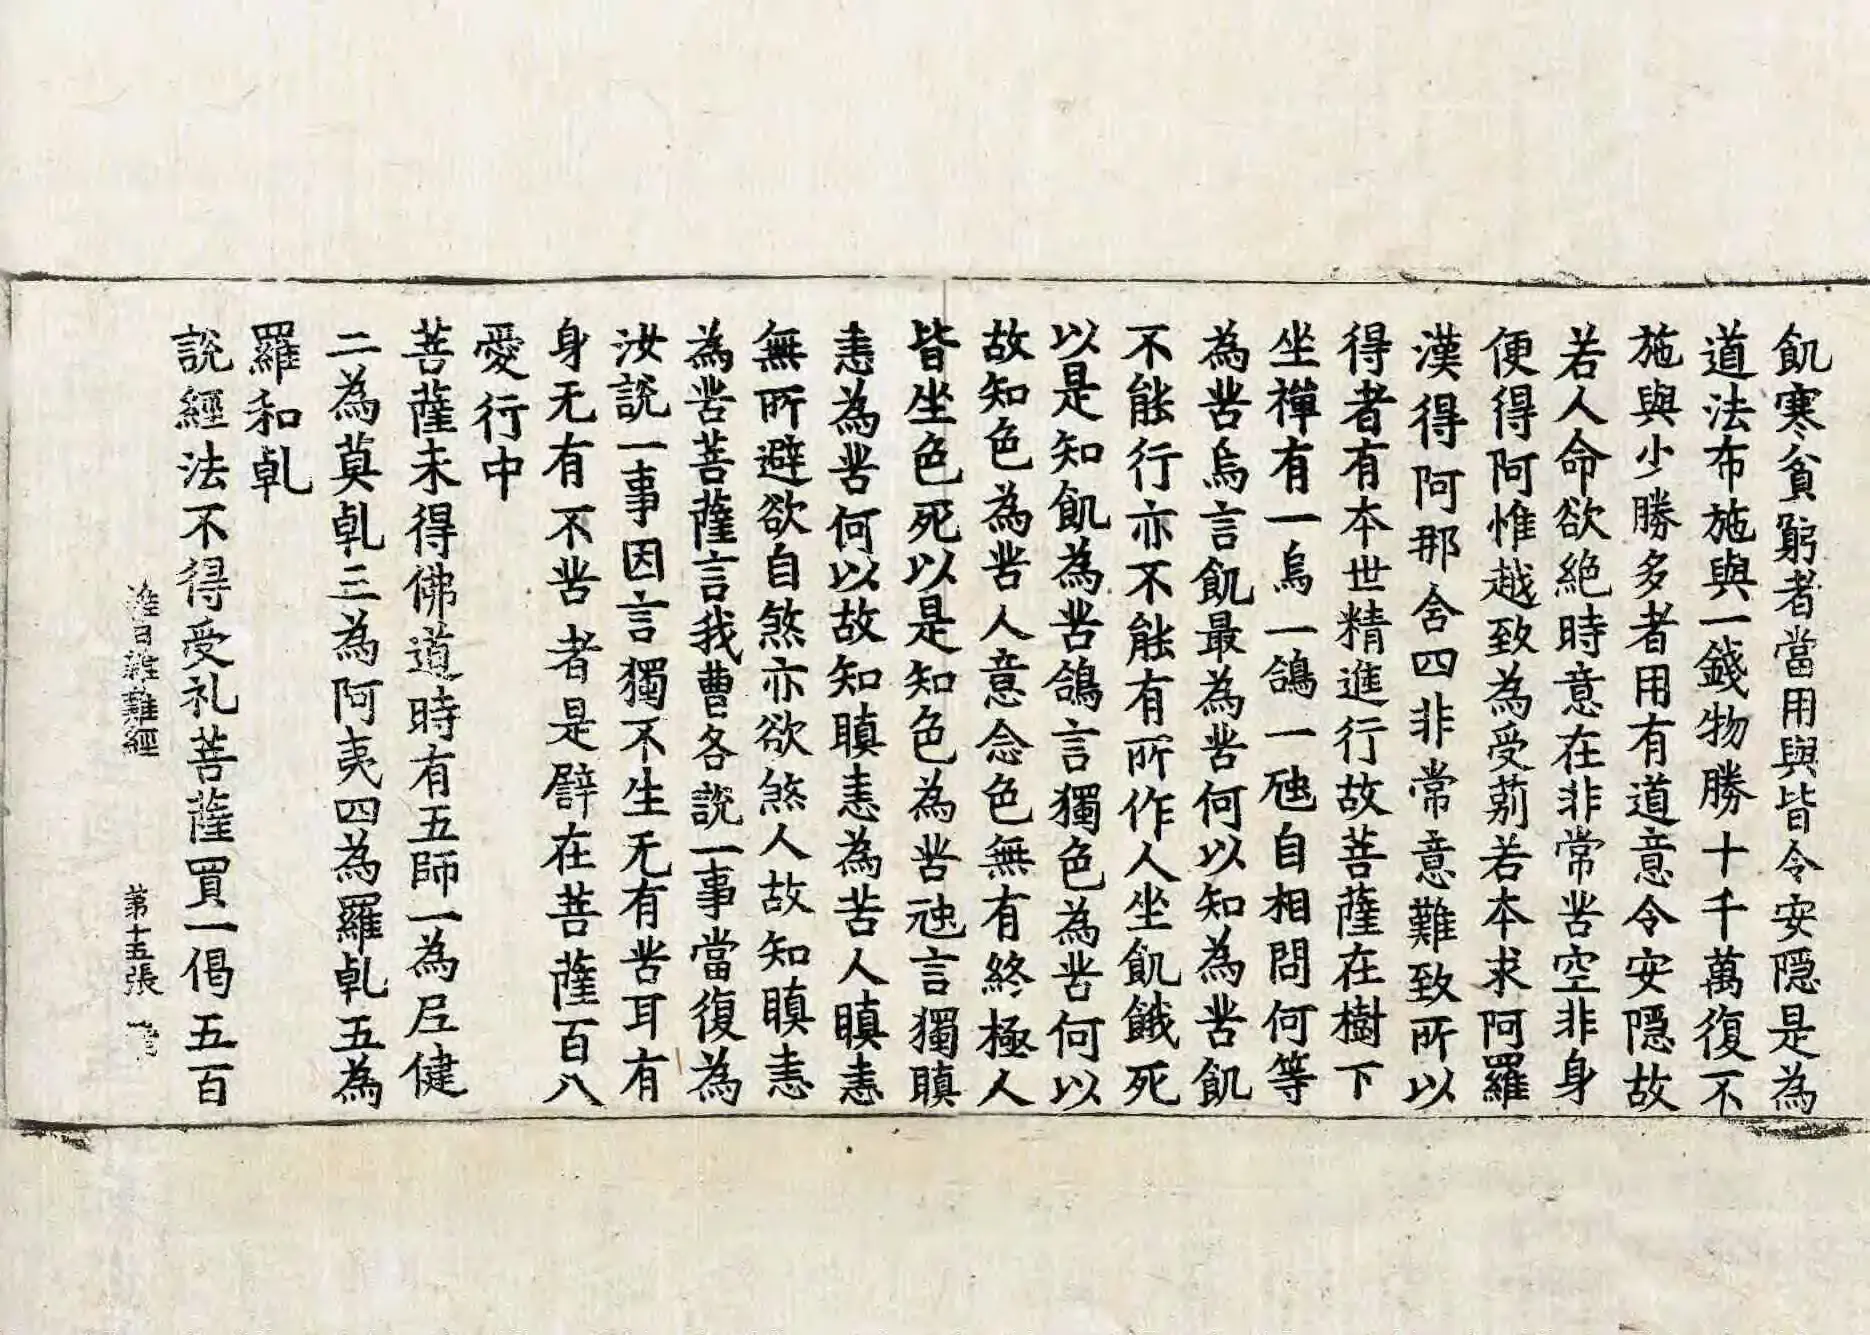 飢寒貧窮者當用與皆令安隱是為
道法布施與一錢物勝十千萬復不
施與少勝多者用有道意令安隱故
若人命欲絶時意在非常苦空非身
便得阿惟越致為受莂若本求阿羅
漢得阿那含四非常意難致所以
得者有本世精進行故菩薩在樹下
坐禪有一烏一鴿一虵自相問何等
為苦烏言飢最為苦何以知為苦飢
不能行亦不能有所作人坐飢餓死
以是知飢為苦鴿言獨色為苦何以
故知色為苦人意念色無有終極人
皆坐色死以是知色為苦虵言獨瞋
恚為苦何以故知瞋恚為苦人瞋恚
無所避欲自煞亦欲煞人故知瞋恚
為苦菩薩言我曹各説一事當復為
汝説一事因言獨不生无有苦耳有
身无有不苦者是譬在菩薩百八
愛行中
菩薩未得佛道時有五師一為尼健
二為莫乹三為阿夷四為羅乹五為
羅和乹
説經法不得受礼菩薩買一偈五百
惟曰雜難經 第十五張